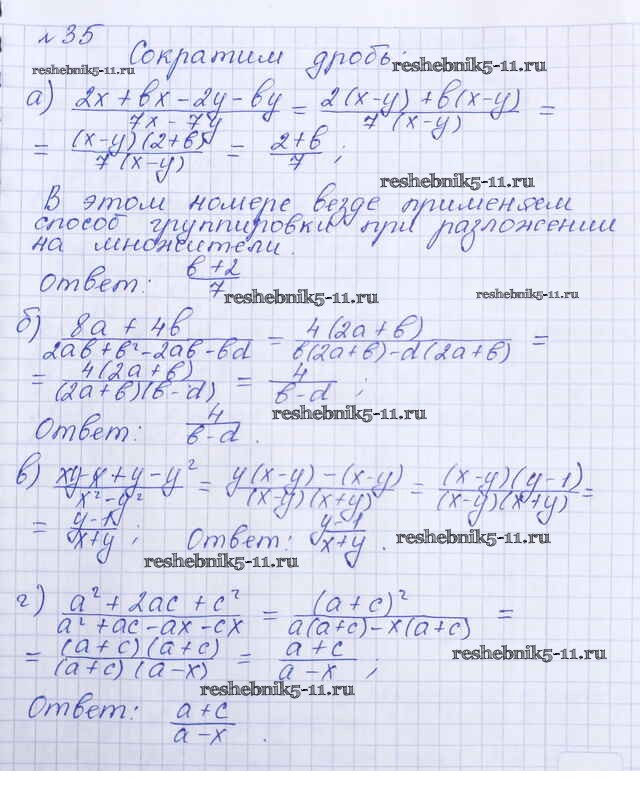 №35
Сократим дробь:
reshebnik5-11.ru reshebnik5-11.ru
а) (2x + bx - 2y - by)/(7x - 7y) = (2(x-y) + b(x-y))/(7(x-y)) =
= ((x-y)(2+b))/(7(x-y)) = (2+b)/7 ;
reshebnik5-11.ru
В этом номере везде применяем
способ группировки при разложении
на множители.
Ответ: (b+2)/7
reshebnik5-11.ru reshebnik5-11.ru
б) (8a + 4b)/(2ab + b² - 2ab - bd) = (4(2a+b))/(b(2a+b) - d(2a+b)) =
= (4(2a+b))/((2a+b)(b-d)) = 4/(b-d) ;
reshebnik5-11.ru
Ответ: 4/(b-d) .
в) (xy - x + y - y²)/(x² - y²) = (y(x-y) - (x-y))/((x-y)(x+y)) = ((x-y)(y-1))/((x-y)(x+y)) =
= (y-1)/(x+y) ; Ответ: (y-1)/(x+y) .
reshebnik5-11.ru
reshebnik5-11.ru
г) (a² + 2ac + c²)/(a² + ac - ax - cx) = (a+c)²/(a(a+c) - x(a+c)) =
= ((a+c)(a+c))/((a+c)(a-x)) = (a+c)/(a-x) ;
reshebnik5-11.ru
reshebnik5-11.ru
Ответ: (a+c)/(a-x) .